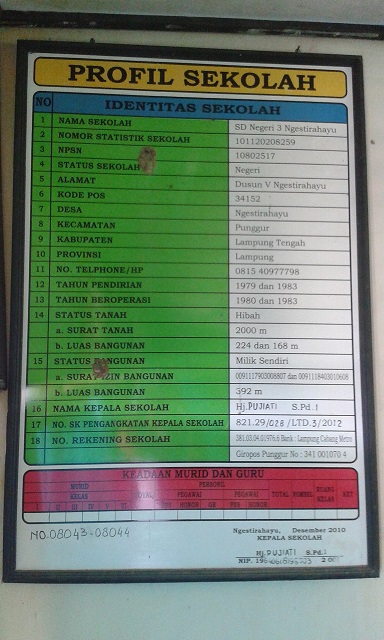 PROFIL SEKOLAH
NO IDENTITAS SEKOLAH
1 NAMA SEKOLAH SD Negeri 3 Ngestirahayu
2 NOMOR STATISTIK SEKOLAH 101120208259
3 NPSN 10802517
4 STATUS SEKOLAH Negeri
5 ALAMAT Dusun V Ngestirahayu
6 KODE POS 34152
7 DESA Ngestirahayu
8 KECAMATAN Punggur
9 KABUPATEN Lampung Tengah
10 PROVINSI Lampung
11 NO. TELPHONE/HP 0815 40977798
12 TAHUN PENDIRIAN 1979 dan 1983
13 TAHUN BEROPERASI 1980 dan 1983
14 STATUS TANAH Hibah
a. SURAT TANAH 2000 m
b. LUAS BANGUNAN 224 dan 168 m
15 STATUS BANGUNAN Milik Sendiri
a. SURAT IZIN BANGUNAN 0091117903008807 dan 0091118403010608
b. LUAS BANGUNAN 392 m
16 NAMA KEPALA SEKOLAH Hj. PUJIATI S.Pd.I
17 NO. SK PENGANGKATAN KEPALA SEKOLAH 821.29/028/LTD.3/2012
18 NO. REKENING SEKOLAH 381.03.04.01976.6 Bank : Lampung Cabang Metro
Giropos Punggur No : 341 001070 4
KEADAAN MURID DAN GURU
MURID PERSONIL
KELAS PEGAWAI PEGAWAI TOTAL ROMBEL RUANG KELAS KET
III IV V HONOR GB PNS HONOR
NO.08043-08044
Ngestirahayu, Desember 2010
KEPALA SEKOLAH
Hj. PUJIATI S.Pd.I
NIP.